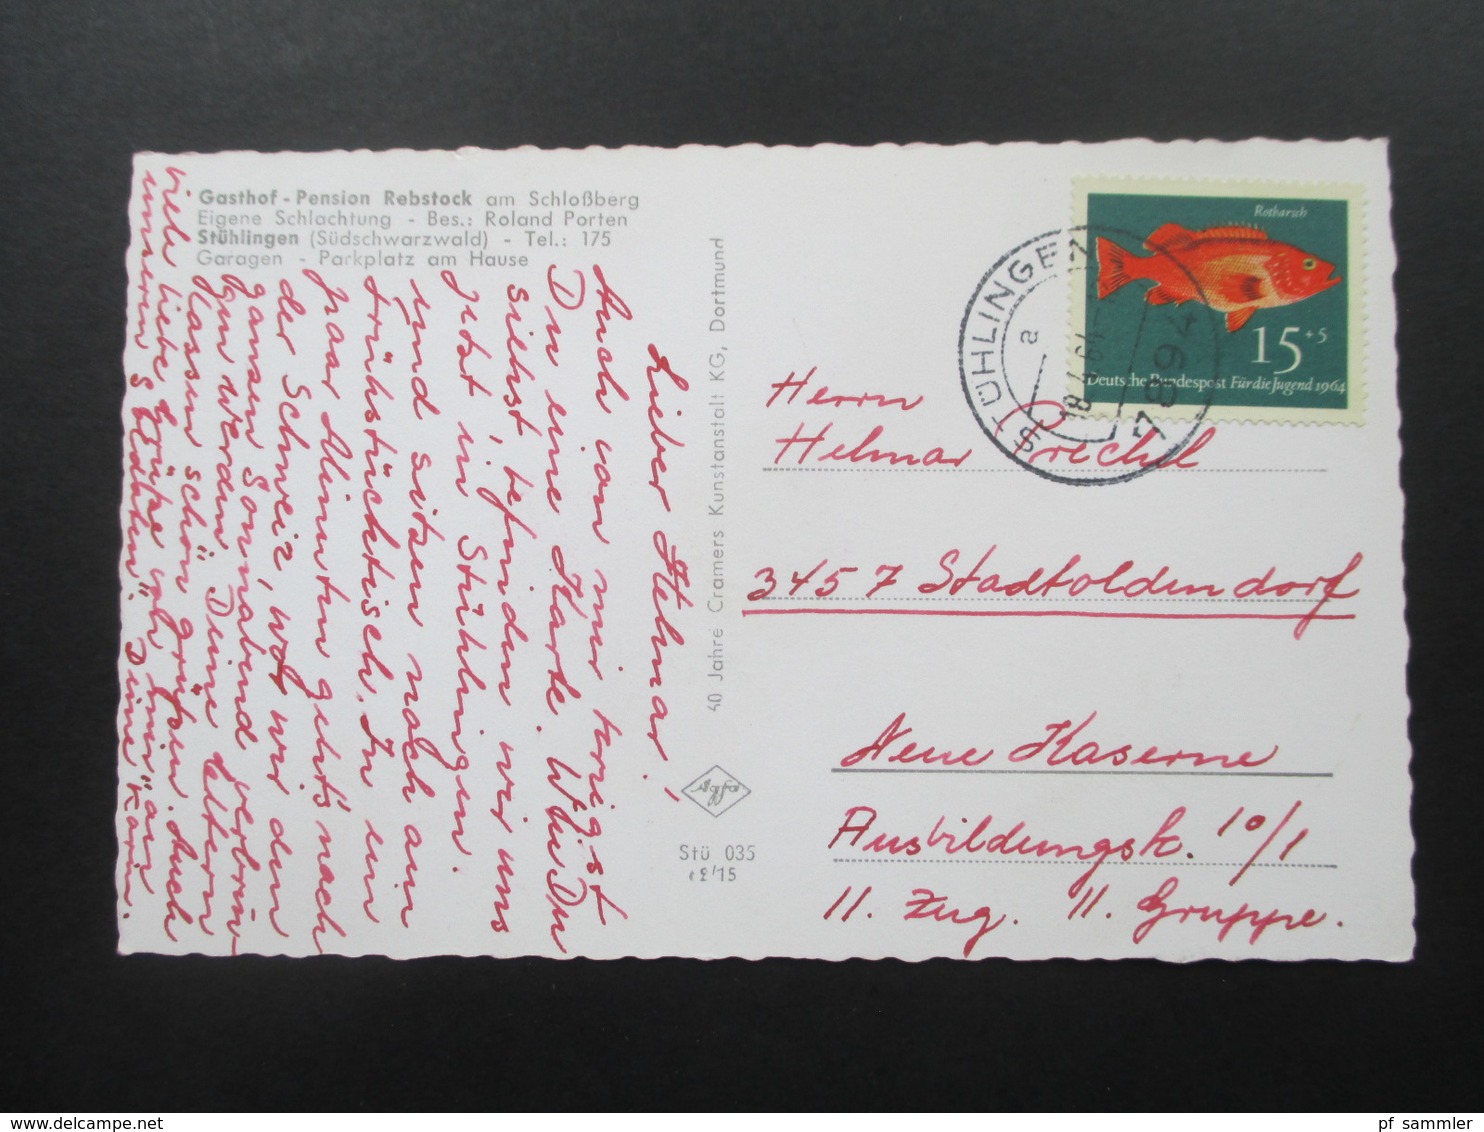 Gasthof - Pension Rebstock am Schloßberg
Eigene Schlachtung - Bes.: Roland Porten
Stühlingen (Südschwarzwald) - Tel.: 175
Garagen - Parkplatz am Hause
Lieber Helmar,
Auch von mir kriegst
Du eine Karte. Wie Du
siehst, befinden wir uns
jetzt in Stühlingen.
und sitzen noch am
Frühstücktisch. In ein
paar Minuten geht's nach
der Schweiz, wo wir den
ganzen Sonnabend verbrin
gen werden. Deine Eltern
lassen schön grüßen. Auch
viele liebe Grüße von mir an
unsern "Soldaten". Deine Karin.
40 Jahre Cramers Kunstanstalt KG, Dortmund
Agfa
Stü 035
Rotbarsch
15+5
Deutsche Bundespost Für die Jugend 1964
STÜHLINGEN
a
7894
Herrn
Helmar Prechtl
3457 Stadtoldendorf
Neue Kaserne
Ausbildungsk. 10/1
II. Zug. II. Gruppe.
http://www.delcampe.net
pf_sammler